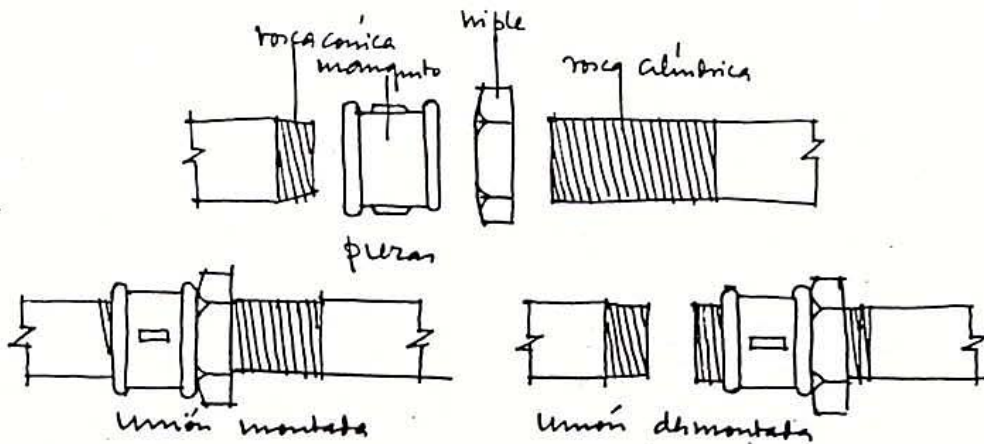 niple
rosca cónica
manguito
rosca cilíndrica
piezas
unión montada
unión desmontada